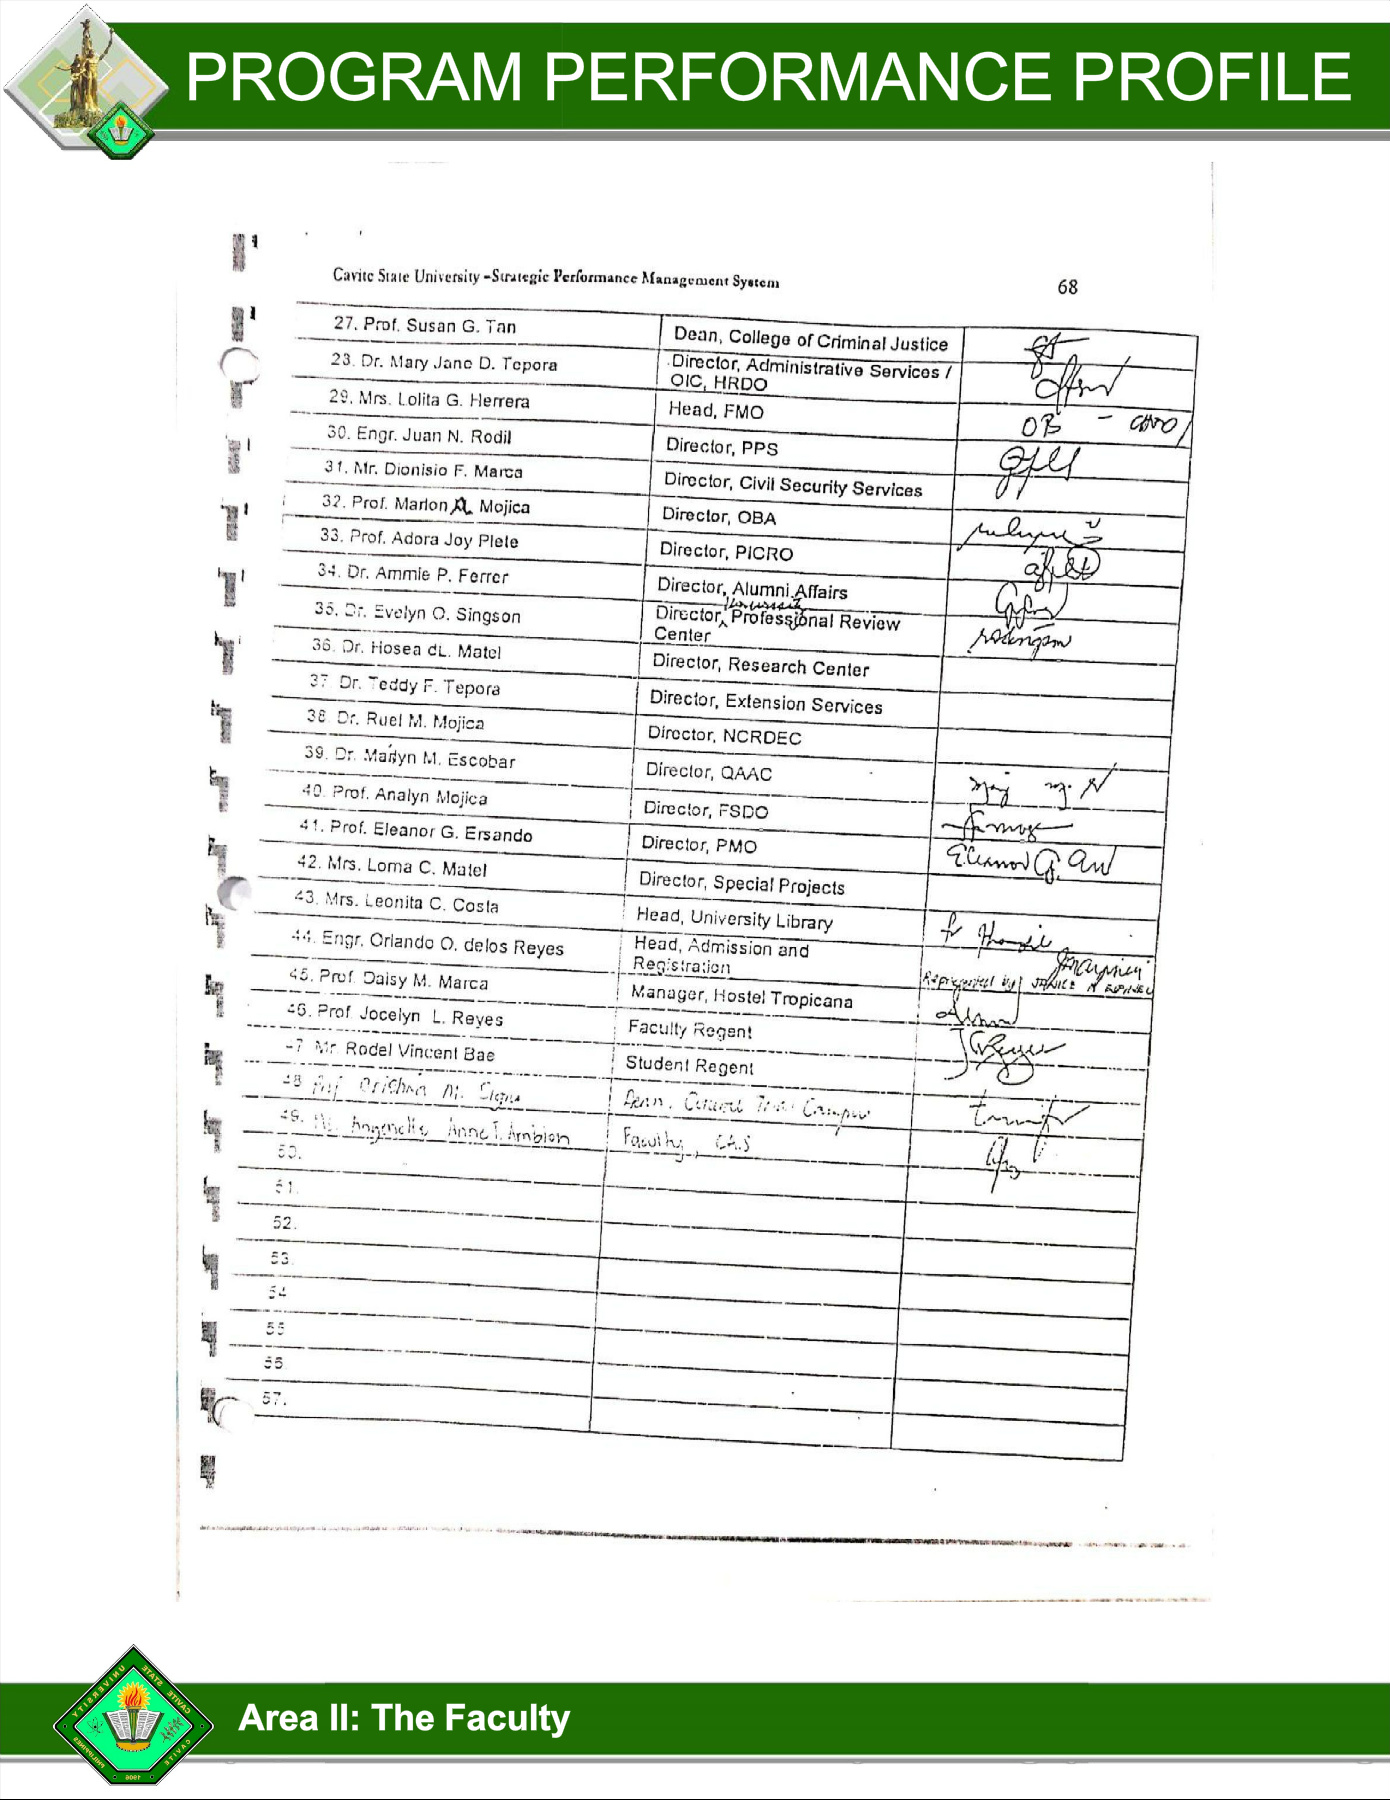 PROGRAM PERFORMANCE PROFILE
Cavite State University -Strategic Performance Management System
68
27. Prof. Susan G. Tan Dean, College of Criminal Justice
28. Dr. Mary Jane D. Tepora Director, Administrative Services /
OIC, HRDO
29. Mrs. Lolita G. Herrera Head, FMO OB -
30. Engr. Juan N. Rodil Director, PPS
31. Mr. Dionisio F. Marca Director, Civil Security Services
32. Prof. Marlon A. Mojica Director, OBA
33. Prof. Adora Joy Plete Director, PICRO
34. Dr. Ammie P. Ferrer Director, Alumni Affairs
University
35. Dr. Evelyn O. Singson Director, Professional Review
Center
36. Dr. Hosea dL. Matel Director, Research Center
37. Dr. Teddy F. Tepora Director, Extension Services
38. Dr. Ruel M. Mojica Director, NCRDEC
39. Dr. Marlyn M. Escobar Director, QAAC
40. Prof. Analyn Mojica Director, FSDO
41. Prof. Eleanor G. Ersando Director, PMO Eleanor G.
42. Mrs. Lorna C. Matel Director, Special Projects
43. Mrs. Leonita C. Costa Head, University Library
44. Engr. Orlando O. delos Reyes Head, Admission and
Registration
Represented by
45. Prof. Daisy M. Marca Manager, Hostel Tropicana
46. Prof. Jocelyn L. Reyes Faculty Regent
47. Mr. Rodel Vincent Bae Student Regent
48. Cristina M. Signo Dean, Campus
49. Ms. Angenelle Anne T. Ambion Faculty, CAS
50.
51.
52.
53.
54
55
56
57.
Area II: The Faculty
CAVITE STATE UNIVERSITY
CAVITE PHILIPPINES
1906